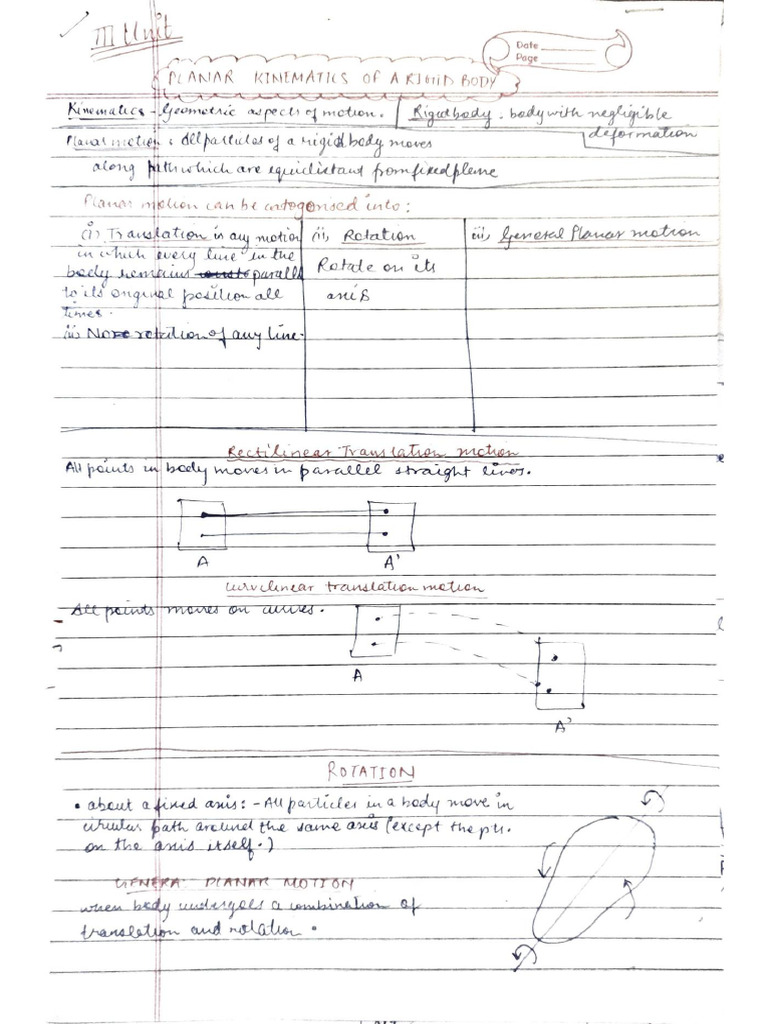 III Unit
Date
Page
PLANAR KINEMATICS OF A RIGID BODY
Kinematics - Geometric aspects of motion. Rigid body . body with negligible
deformation
Planar motion : All particles of a rigid body moves
along path which are equidistant from fixed plene
Planar motion can be categorised into:
(i) Translation in any motion
in which every line in the
body remains parallel
to its original position all
times.
ii) No rotation of any line.
(ii) Rotation
Rotate on its
axis
iii) General Planar motion
Rectilinear Translation motion
All points in body moves in parallel straight lines.
A A'
curvilinear translation motion
All points moves on curves.
A
A'
ROTATION
• about a fixed axis: - All particles in a body move in
circular path around the same axis (except the pts.
on the axis itself.)
GENERA PLANAR MOTION
when body undergoes a combination of
translation and rotation .